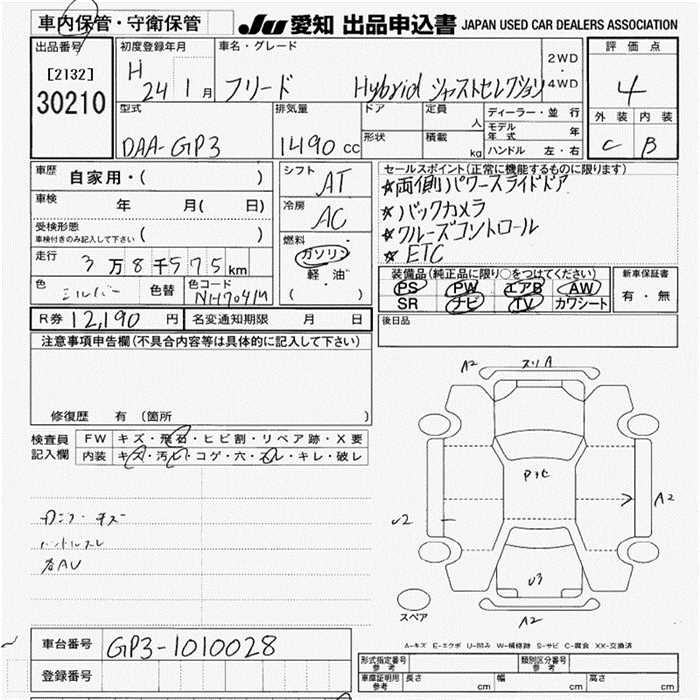 車内保管・守衛保管
JU 愛知 出品申込書 JAPAN USED CAR DEALERS ASSOCIATION
出品番号
[2132]
30210
初度登録年月
H 24 1 月
車名・グレード
フリード Hybrid ジャストセレクション
2WD
・
4WD
評価点
4
外装 内装
C B
型式
DAA-GP3
排気量
1490 cc
ドア
形状
定員
人
積載
kg
ディーラー・並行
モデル年式 年
ハンドル 左・右
車歴
自家用・( )
車検
年 月( 日)
受検形態
車検付きのみ記入して下さい ( )
走行
3万8千575km
色
シルバー
色替
色コード
NH704M
シフト
AT
冷房
AC
燃料
ガソリン
軽油
( )
セールスポイント(正常に機能するものに限ります)
☆両側パワースライドドア
☆バックカメラ
☆クルーズコントロール
☆ETC
装備品(純正品に限り○をつけてください)
PS PW エアB AW
SR ナビ TV カワシート
新車保証書
有・無
R券 12,190 円
名変通知期限 月 日
後日品
注意事項申告欄(不具合内容等は具体的に記入して下さい)
修復歴 有(箇所 )
検査員
記入欄
FW キズ・飛石・ヒビ割・リペア跡・X要
内装 キズ・汚れ・コゲ・穴・スレ・キレ・破レ
ハンドルスレ
社AV
A2
スリA
A2
U2
U3
A2
スペア
A-キズ E-エクボ U-凹み W-補修跡 S-サビ C-腐食 XX-交換済
車台番号
GP3-1010028
登録番号
型式指定番号
参考
類別区分番号
参考
車庫証明用
参考
長さ cm
幅 cm
高さ cm